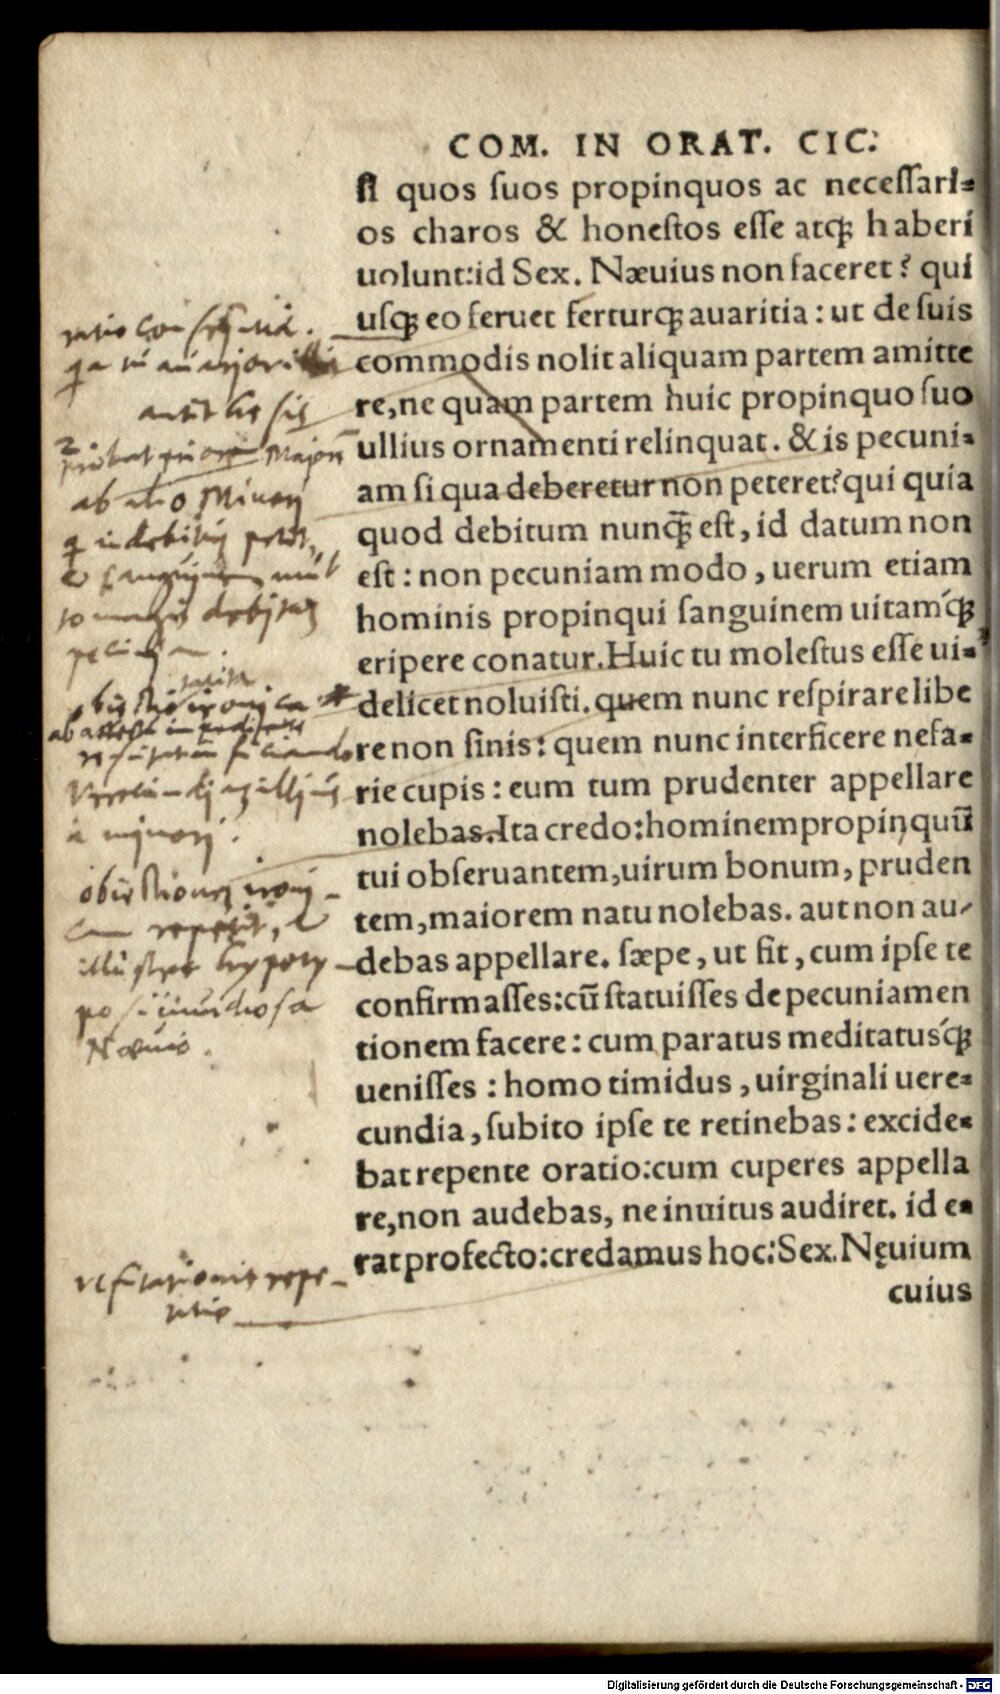 COM. IN ORAT. CIC.
si quos suos propinquos ac necessari=
os charos & honestos esse atq; haberi
uolunt:id Sex. Næuius non faceret? qui
usq; eo feruet ferturq; auaritia: ut de suis
commodis nolit aliquam partem amitte
re,ne quam partem huic propinquo suo
ullius ornamenti relinquat. & is pecuni=
am si qua deberetur non peteret?qui quia
quod debitum nunq̃ est, id datum non
est: non pecuniam modo, uerum etiam
hominis propinqui sanguinem uitamq́;
eripere conatur.Huic tu molestus esse ui=
delicet noluisti. quem nunc respirare libe
re non sinis: quem nunc interficere nefa=
rie cupis: eum tum prudenter appellare
nolebas.Ita credo:hominem propinquũ
tui obseruantem,uirum bonum, pruden
tem,maiorem natu nolebas. aut non au=
debas appellare. sæpe, ut fit, cum ipse te
confirmasses:cũ statuisses de pecunia men
tionem facere: cum paratus meditatusq́;
uenisses: homo timidus, uirginali uere=
cundia, subito ipse te retinebas: excide=
bat repente oratio:cum cuperes appella
re,non audebas, ne inuitus audiret. id e=
rat profecto:credamus hoc: Sex. Nęuium
cuius
ratio
antithesis
probat Major
ab alio Minori
debitum
obiectio ironica
a minori.
obiectionem ironi-
cam repetit, &
illustrat hypoty
posi inuidiosa
Næuio.
refutationis repe-
titio
Digitalisierung gefördert durch die Deutsche Forschungsgemeinschaft - DFG